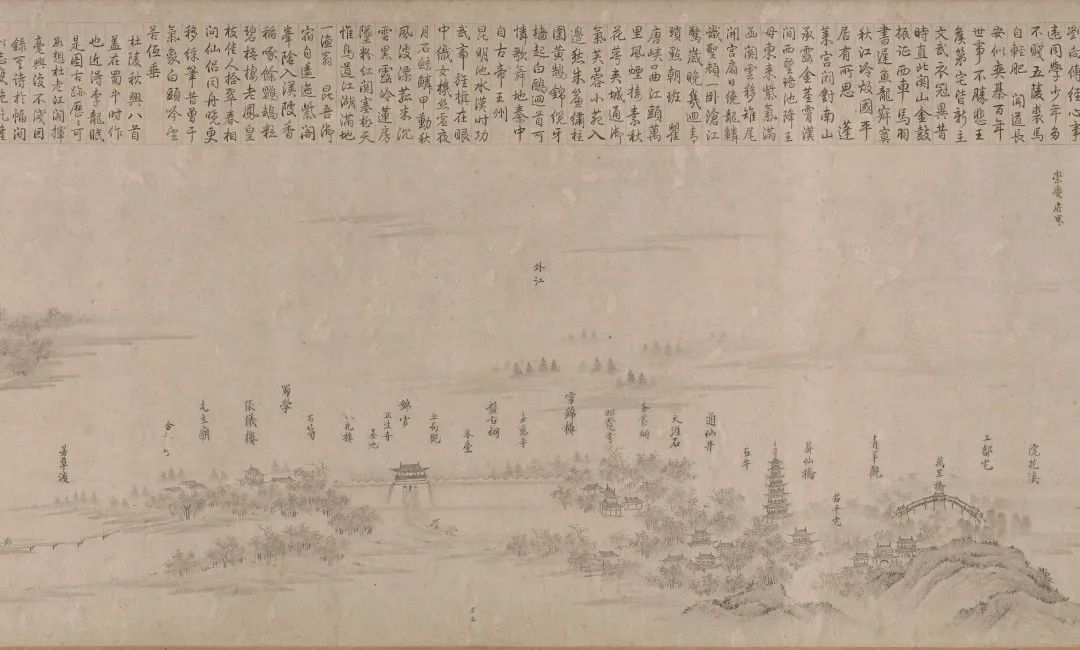 劉向傳經心事
違同學少年多
不賤五陵裘馬
自輕肥 聞道長
安似奕棊百年
世事不勝悲王
矦第宅皆新主
文武衣冠異昔
時直北關山金鼓
振征西車馬羽
書遲魚龍寂寞
秋江冷故國平
居有所思 蓬
萊宮闕對南山
承露金莖霄漢
間西望瑤池降王
母東來紫氣滿
函關雲移雉尾
開宮扇日繞龍鱗
識聖顏一卧滄江
驚歲晚幾迴青
瑣點朝班 瞿
唐峽曲江頭萬
里風煙接素秋
花萼夾城通御
氣芙蓉小苑入
邊愁朱簾繡柱
圍黃鵠錦纜牙
檣起白鷗迴首可
憐歌舞地秦中
自古帝王州
昆明池水漢時功
武帝旌旗在眼
中織女機絲虛夜
月石鯨鱗甲動秋
風波漂菰米沉
雲黑露冷蓮房
墜粉紅關塞極天
惟鳥道江湖滿地
一漁翁 昆吾御
宿自逶迤紫閣
峯陰入渼陂香
稻啄餘鸚鵡粒
碧梧棲老鳳皇
枝佳人拾翠春相
問仙侶同舟晚更
移綵筆昔曾干
氣象白頭吟望
苦低垂
杜陵秋興八首
蓋在蜀年時作
也近得李龍眠
是圖古蹟歷歷可
數想杜老江閣揮
毫興復不淺因
錄其詩於幅間
崇慶府界
外江
浣花溪
工部宅
萬里橋
青羊觀
君平宅
昇仙橋
通仙井
天涯石
雪錦樓
大慈寺
盤古祠
錦官
正法寺
石筍
蜀學
張儀樓
先主廟